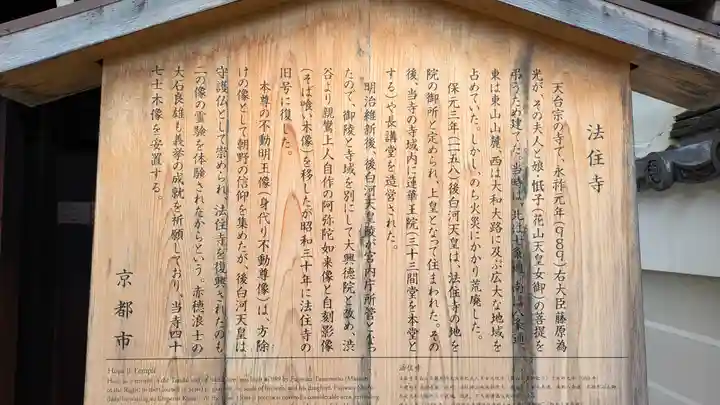 法住寺
天台宗の寺で、永祚元年(989)右大臣藤原為
光が、その夫人と娘・忯子(花山天皇女御)の菩提を
弔うため建てた。当時は、北は七条通、南は八条通、
東は東山山麓、西は大和大路に及ぶ広大な地域を
占めていた。しかし、のち火災にかかり荒廃した。
保元三年(一一五八)後白河天皇は、法住寺の地を
院の御所と定められ、上皇となって住まわれた。その
後、当寺の寺域内に蓮華王院(三十三間堂を本堂と
する)や長講堂を造営された。
明治維新後、後白河天皇陵が宮内庁所管となっ
たので、御陵と寺域を別にして大興徳院と改め、渋
谷より親鸞上人自作の阿弥陀如来像と自刻影像
(そば喰い木像)を移したが昭和三十年に法住寺の
旧号に復した。
本尊の不動明王像(身代り不動尊像)は、方除
けの像として朝野の信仰を集めたが、後白河天皇は
守護仏として崇められ、法住寺を復興されたのも
この像の霊験を体験されたからという。赤穂浪士の
大石良雄も義挙の成就を祈願しており、当寺四十
七士木像を安置する。
京都市
Hoju-ji Temple
法住寺